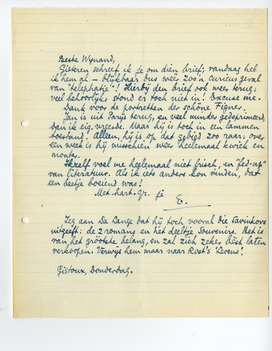 Beste Wijnand,
Gisteren schreef ik je om dien brief; vandaag heb
ik hem al — blijkbaar dus weer zoo'n curieus geval
van "telephatie"! Hierbij den brief ook weer terug;
veel behoorlijks stond er toch niet in! Excuse me.
Dank voor de portretten der schoone Figner.
Jan is uit Parijs terug, en veel minder gedeprimeerd,
dan eig. vreesde. Maar hij is toch in een lammen
toestand! Alleen, hij is op het gebied zoo raar: over
een week is hij misschien weer heelemaal kwiek en
monter.
Ikzelf voel me heelemaal niet frisch, en "fed-up"
van literatuur. Als ik iets anders kon vinden, dat
een beetje boeiend was!
Met hart. gr. je
E.
Zeg aan De Lange dat hij toch vooral die Savinkovs
uitgeeft: de 2 romans en het deeltje Souvenirs. Het is
van het grootste belang, en zal zich zeker best laten
verkoopen. Verwijs hem maar naar Rost's "Levens".
Gistoux, Donderdag.